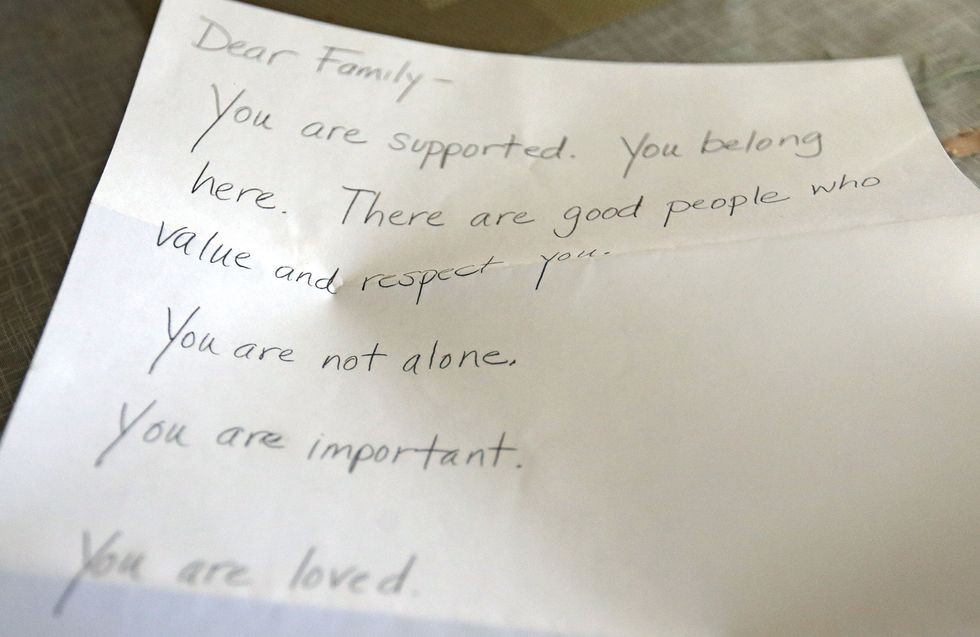 Dear Family -
You are supported. You belong
here. There are good people who
value and respect you.
You are not alone.
You are important.
You are loved.